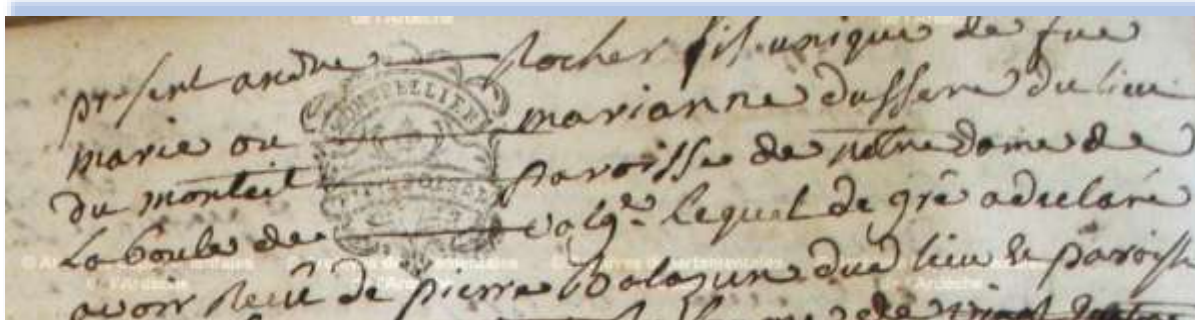 present andre Rocher fils unique de fue
marie ou marianne dussere du lieu
du monteil paroisse de notre dame de
La boule de valg.e lequel de gré a declaré
avoir Receu de pierre balazun dud lieu & paroisse
MONTPELLIER
de l'Ardèche